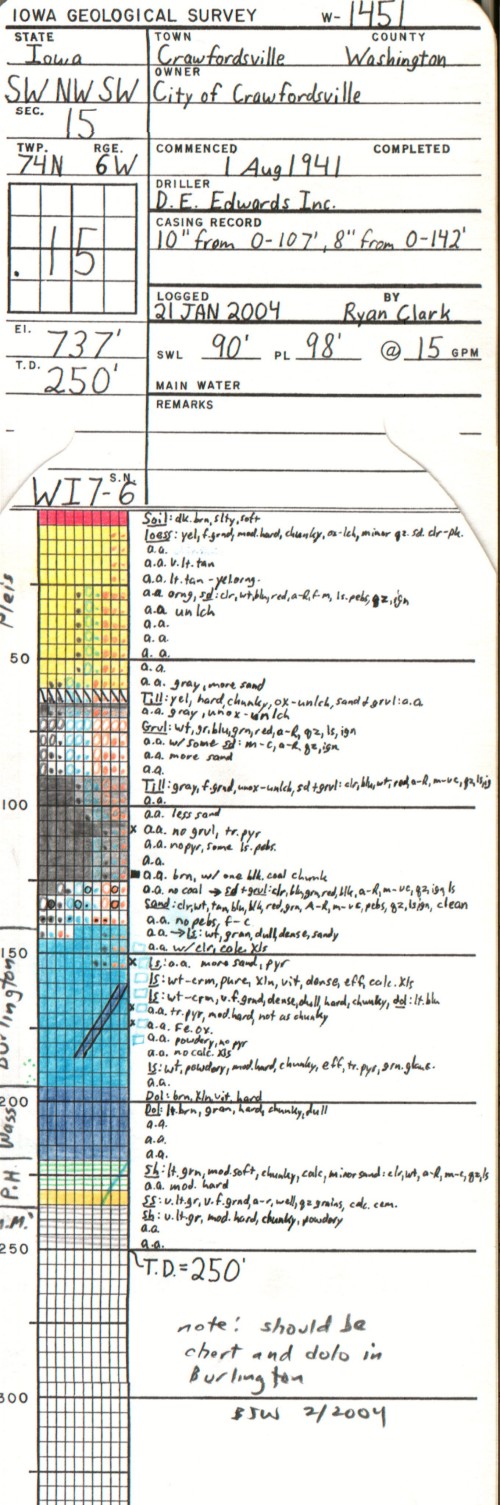 IOWA GEOLOGICAL SURVEY W- 1451
STATE TOWN COUNTY
Iowa Crawfordsville Washington
OWNER
SW NW SW City of Crawfordsville
SEC.
15
TWP. RGE. COMMENCED COMPLETED
74N 6W 1 Aug 1941
DRILLER
D.E. Edwards Inc.
CASING RECORD
.15 10" from 0-107', 8" from 0-142'
LOGGED BY
21 JAN 2004 Ryan Clark
El. 737' SWL 90' PL 98' @ 15 GPM
T.D. 250'
MAIN WATER
REMARKS
S.N.
WI7-6
Soil: dk.brn, slty, soft
loess: yel, f.grnd, mod.hard, chunky, ox-lch, minor qz. sd. clr-pk.
a.a.
a.a. v. lt. tan
a.a. lt. tan-yelorng.
a.a. orng, sd: clr, wt, blu, red, a-R, f-m, ls. pebs, qz, ign
a.a. un lch
a.a.
a.a.
a.a.
50
a.a.
a.a. gray, more sand
Till: yel, hard, chunky, ox-unlch, sand + grvl: a.a.
a.a. gray, unox-unlch
Grvl: wt, gr, blu, grn, red, a-R, qz, ls, ign
a.a. w/ some sd: m-c, a-R, qz, ign
a.a. more sand
a.a.
Till: gray, f.grnd, unox-unlch, sd + grvl: clr, blu, wt, red, a-R, m-vc, qz, ls, ig
100
a.a.
a.a. less sand
x a.a. no grvl, tr. pyr
a.a. no pyr, some ls. pebs.
a.a.
a.a. brn, w/ one blk. coal chunk
a.a. no coal → sd + grvl: clr, blu, grn, red, blk, a-R, m-vc, qz, ign ls
Sand: clr, wt, tan, blu, blk, red, grn, A-R, m-vc, pebs, qz, ls, ign, clean
a.a. no pebs, f-c
a.a. → ls: wt, gran, dull, dense, sandy
150
a.a. w/ clr, calc. xls
x ls: a.a. more sand, pyr
ls: wt-crm, pure, xln, vit, dense, eff, calc. xls
ls: wt-crm, v.f.grnd, dense, dull, hard, chunky, dol: lt. blu
x a.a. tr. pyr, mod. hard, not as chunky
x a.a. Fe. ox.
a.a. powdery, no pyr
a.a. no calc. xls
ls: wt, powdery, mod. hard, chunky, eff, tr. pyr, grn. glauc.
a.a.
200
Dol: brn, xln, vit, hard
Dol: lt. brn, gran, hard, chunky, dull
a.a.
a.a.
a.a.
Sh: lt. grn, mod. soft, chunky, calc, minor sand: clr, wt, a-R, m-c, qz, ls
a.a. mod. hard
SS: v. lt. gr, v.f.grnd, a-r, well, qz grains, calc. cem.
Sh: v. lt. gr, mod. hard, chunky, powdery
a.a.
250
a.a.
T.D. = 250'
Pleis
Burlington
Wass
P.H.
note: should be
chert and dolo in
Burlington
BJW 2/2004
300